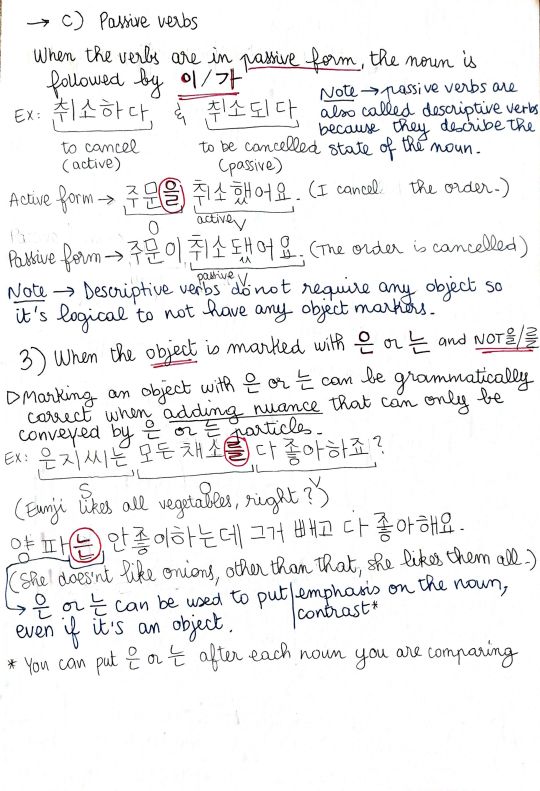 → C) Passive verbs
When the verbs are in passive form, the noun is
followed by 이/가
Note → passive verbs are
also called descriptive verbs
because they describe the
state of the noun.
Ex: 취소하다 & 취소되다
to cancel to be cancelled
(active) (passive)
Active form → 주문을 취소했어요. (I cancel the order.)
O active V
Passive form → 주문이 취소됐어요. (The order is cancelled)
passive V
Note → Descriptive verbs do not require any object so
it's logical to not have any object markers.
3) When the object is marked with 은 or 는 and NOT 을/를
▷Marking an object with 은 or 는 can be grammatically
correct when adding nuance that can only be
conveyed by 은 or 는 particles.
Ex: 은지씨는 모든 채소를 다 좋아하죠?
S O V
(Eunji likes all vegetables, right?)
양파는 안 좋이하는데 그거 빼고 다 좋아해요.
(She does'nt like onions, other than that, she likes them all.)
→ 은 or 는 can be used to put emphasis on the noun,
even if it's an object. contrast*
* You can put 은 or 는 after each noun you are comparing